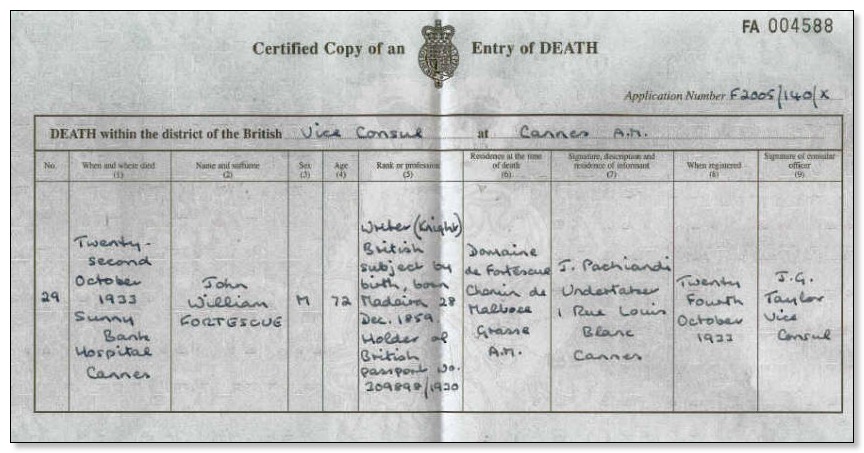 FA 004588
Certified Copy of an Entry of DEATH
Application Number F2005/140/X
DEATH within the district of the British Vice Consul at Cannes A.M.
No.
When and where died
(1)
Name and surname
(2)
Sex
(3)
Age
(4)
Rank or profession
(5)
Residence at the time
of death
(6)
Signature, description and
residence of informant
(7)
When registered
(8)
Signature of consular
officer
(9)
29
Twenty-
second
October
1933
Sunny
Bank
Hospital
Cannes
John
William
FORTESCUE
M
72
Writer (Knight)
British
subject by
birth, born
Madeira 28
Dec. 1859.
Holder of
British
passport No.
209898/1920
Domaine
de Fortescue
Chemin de
Malbosc
Grasse
A.M.
J. Pachiandi
Undertaker
1 Rue Louis
Blanc
Cannes
Twenty
Fourth
October
1933
J.G.
Taylor
Vice
Consul